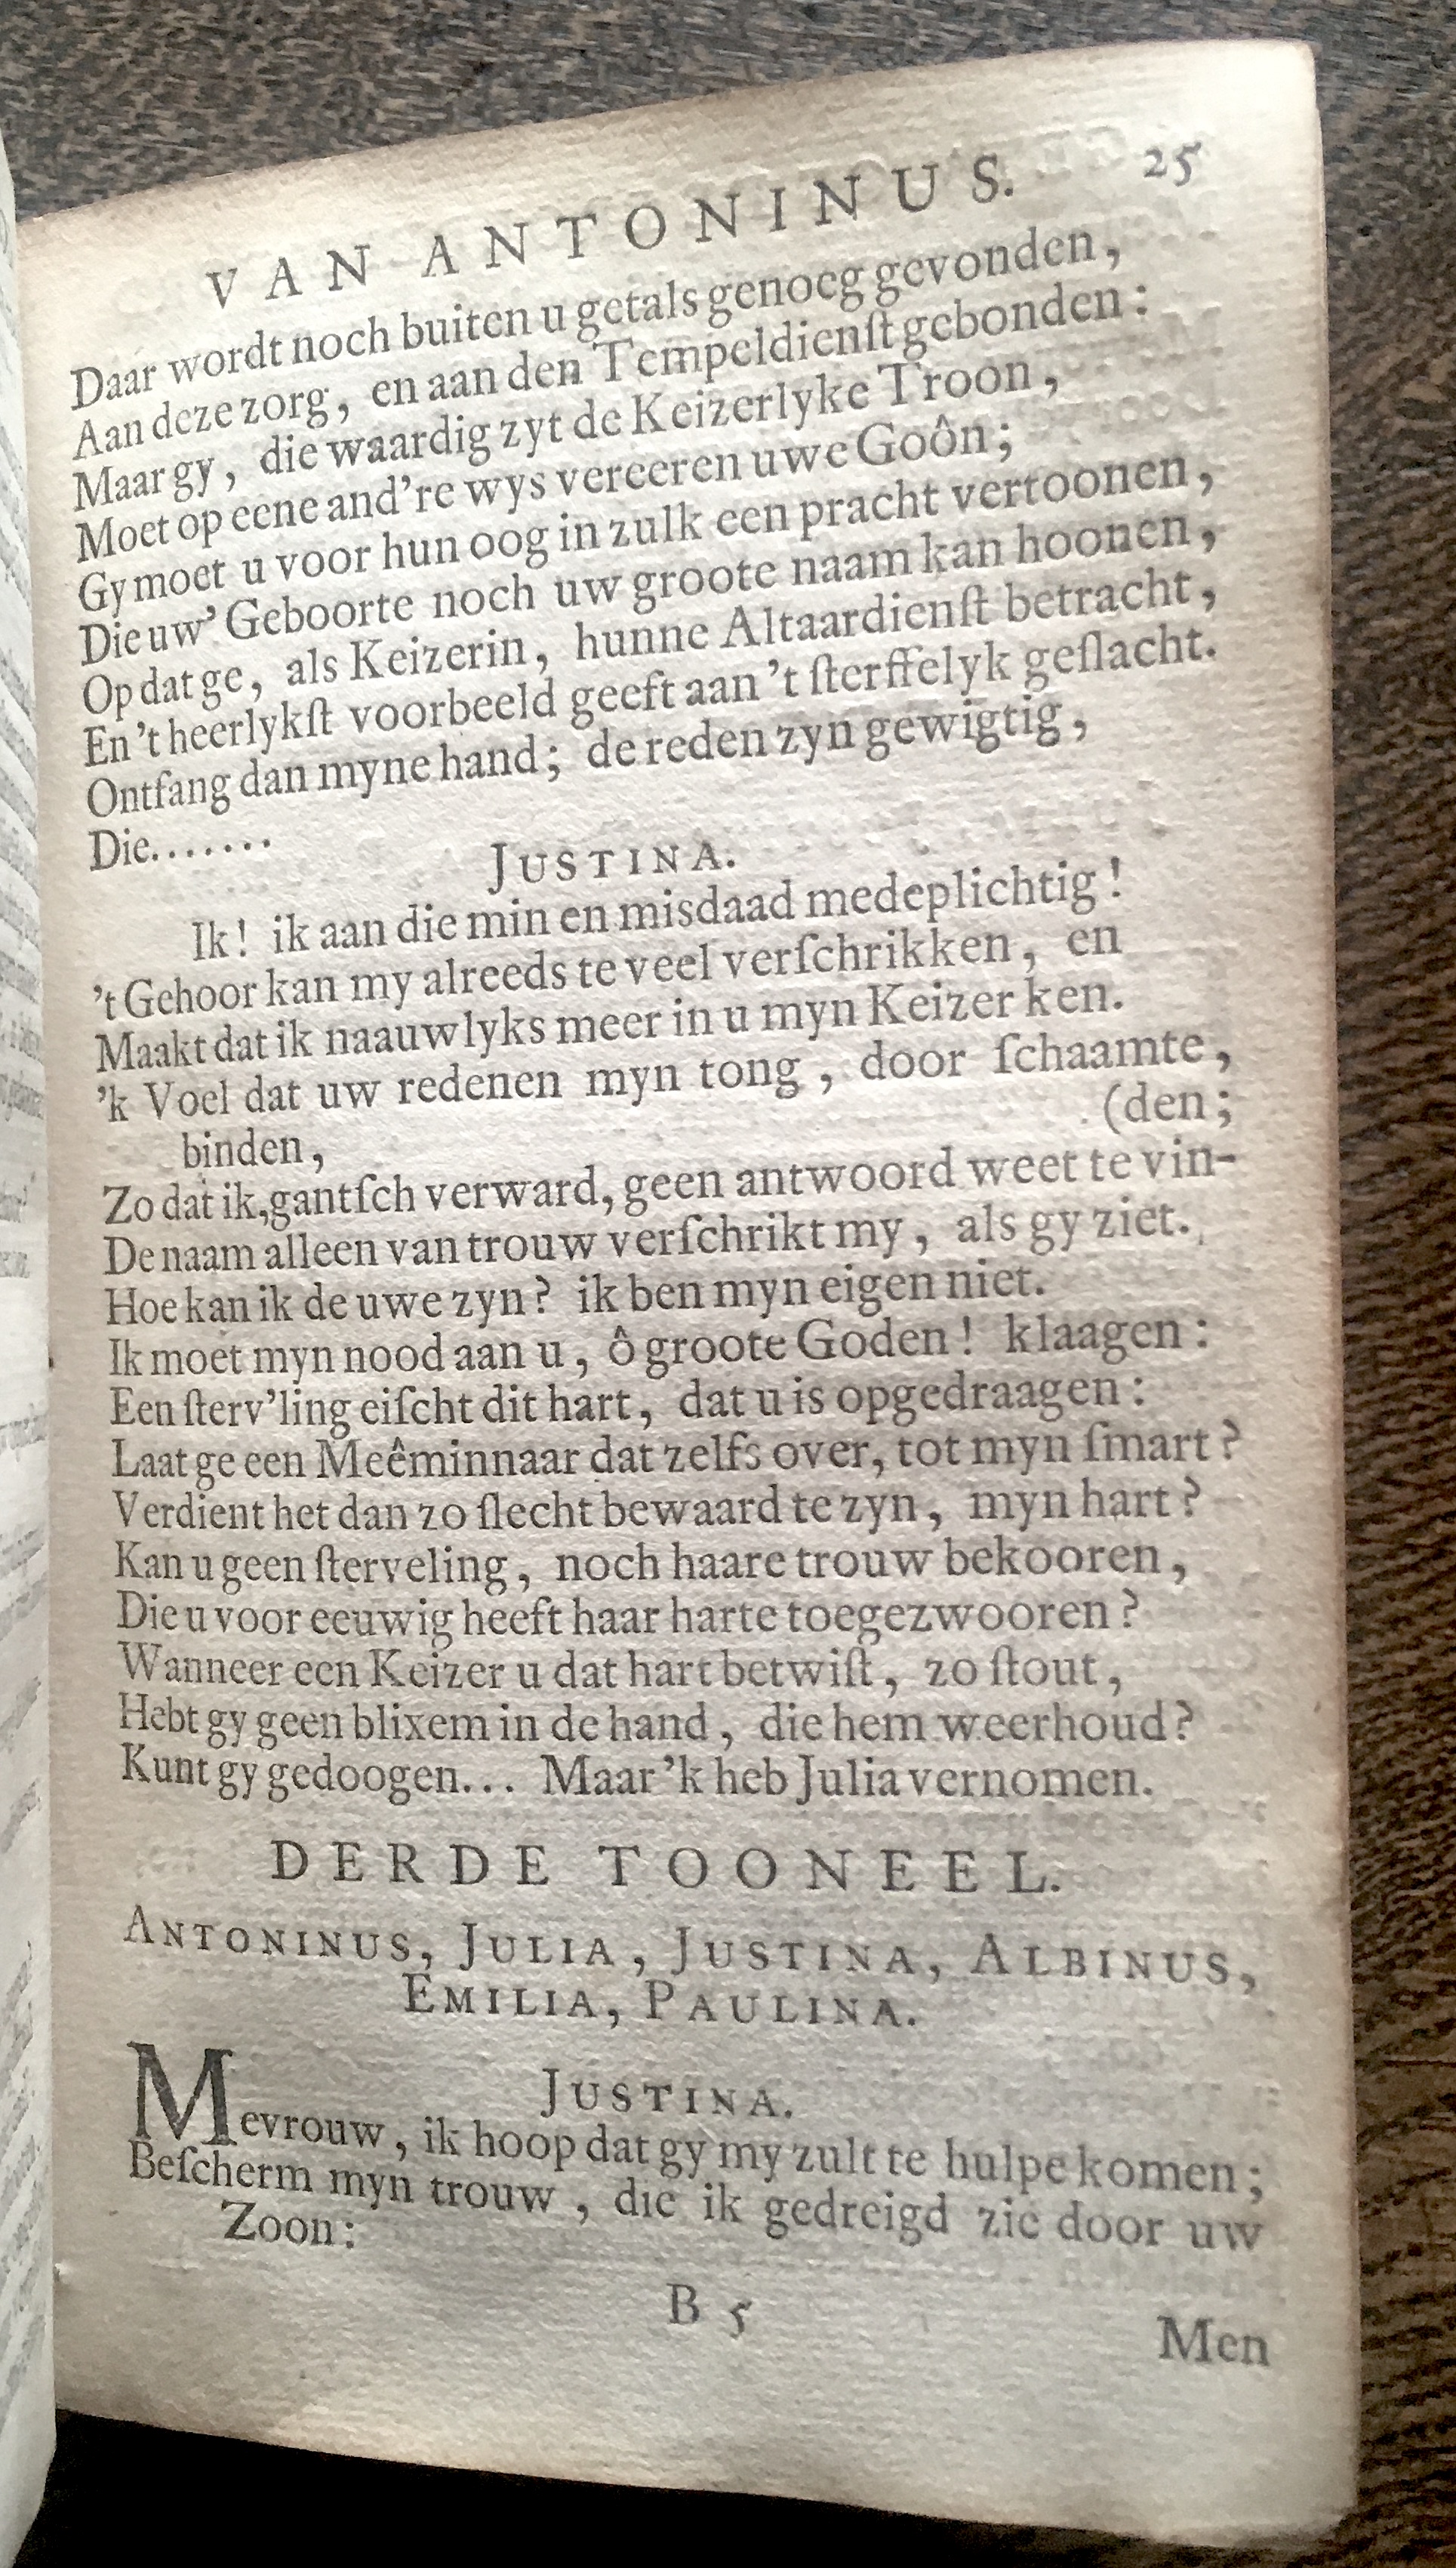 VAN ANTONINUS. 25
Daar wordt noch buiten u getals genoeg gevonden,
Aan deze zorg, en aan den Tempeldienſt gebonden:
Maar gy, die waardig zyt de Keizerlyke Troon,
Moet op eene and're wys vereeren uwe Goôn;
Gy moet u voor hun oog in zulk een pracht vertoonen,
Die uw' Geboorte noch uw groote naam kan hoonen,
Op dat ge, als Keizerin, hunne Altaardienſt betracht,
En 't heerlykſt voorbeeld geeft aan 't ſterffelyk geſlacht.
Ontfang dan myne hand; de reden zyn gewigtig,
Die.......
JUSTINA.
Ik! ik aan die min en misdaad medeplichtig!
't Gehoor kan my alreeds te veel verſchrikken, en
Maakt dat ik naauwlyks meer in u myn Keizer ken.
'k Voel dat uw redenen myn tong, door ſchaamte,
binden, (den;
Zo dat ik, gantſch verward, geen antwoord weet te vin-
De naam alleen van trouw verſchrikt my, als gy ziet.
Hoe kan ik de uwe zyn? ik ben myn eigen niet.
Ik moet myn nood aan u, ô groote Goden! klaagen:
Een ſterv'ling eiſcht dit hart, dat u is opgedraagen:
Laat ge een Meêminnaar dat zelfs over, tot myn ſmart?
Verdient het dan zo ſlecht bewaard te zyn, myn hart?
Kan u geen ſterveling, noch haare trouw bekooren,
Die u voor eeuwig heeft haar harte toegezwooren?
Wanneer een Keizer u dat hart betwiſt, zo ſtout,
Hebt gy geen blixem in de hand, die hem weerhoud?
Kunt gy gedoogen... Maar 'k heb Julia vernomen.
DERDE TOONEEL.
ANTONINUS, JULIA, JUSTINA, ALBINUS,
EMILIA, PAULINA.
JUSTINA.
Mevrouw, ik hoop dat gy my zult te hulpe komen;
Beſcherm myn trouw, die ik gedreigd zie door uw
Zoon:
B 5
Men